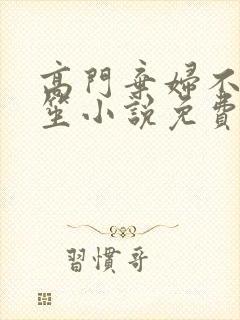 高門棄婦不
笙小說免費
習慣哥